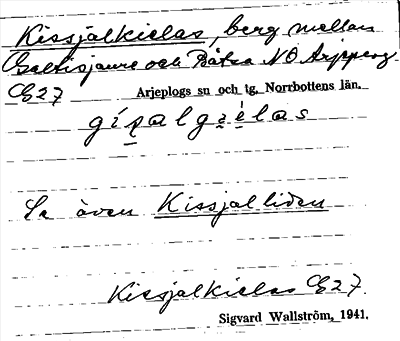 Kissjalkielas, berg mellan
Galtisjaure och Båtsa NO Arjepzog
CE27 Arjeplogs sn och tg, Norrbottens län.
gípalgielas
Se även Kissjalliden
Kissjalkielas CE27.
Sigvard Wallström, 1941.